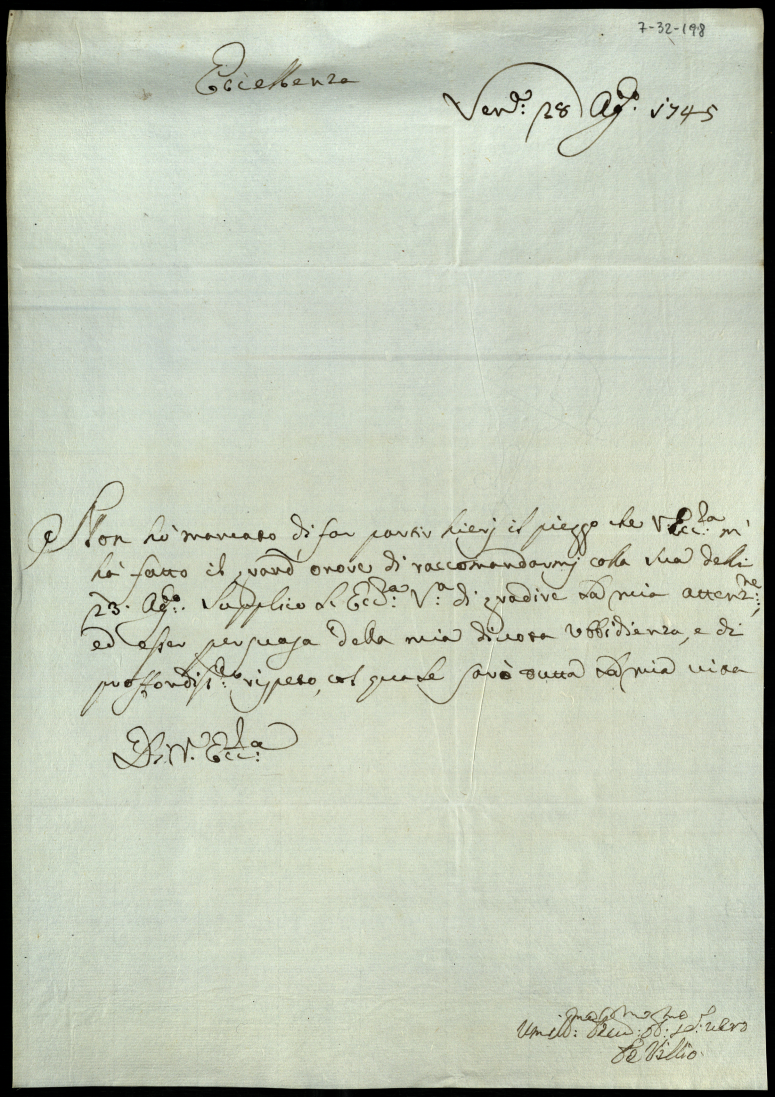 7-32-198
Eccellenza
Ven.a: 28 Ag.o: 1745
Non hò mancato di far partir hierj il piego che V. Ecc.za m'
hà fatto il grand onore di raccomandarmj colla sua delli
23. Ag.o: Supplico L' Ecc.za V.a di gradire la mia attenz.ne;
ed esser persuasa della mia divota ubbidienza, e di
proffondiss.o: rispeto, col quale sarò tutta la mia vita
Di V. Ecc.za:
Umil.mo: Dev.mo: Ob.mo: Servo
De Villio